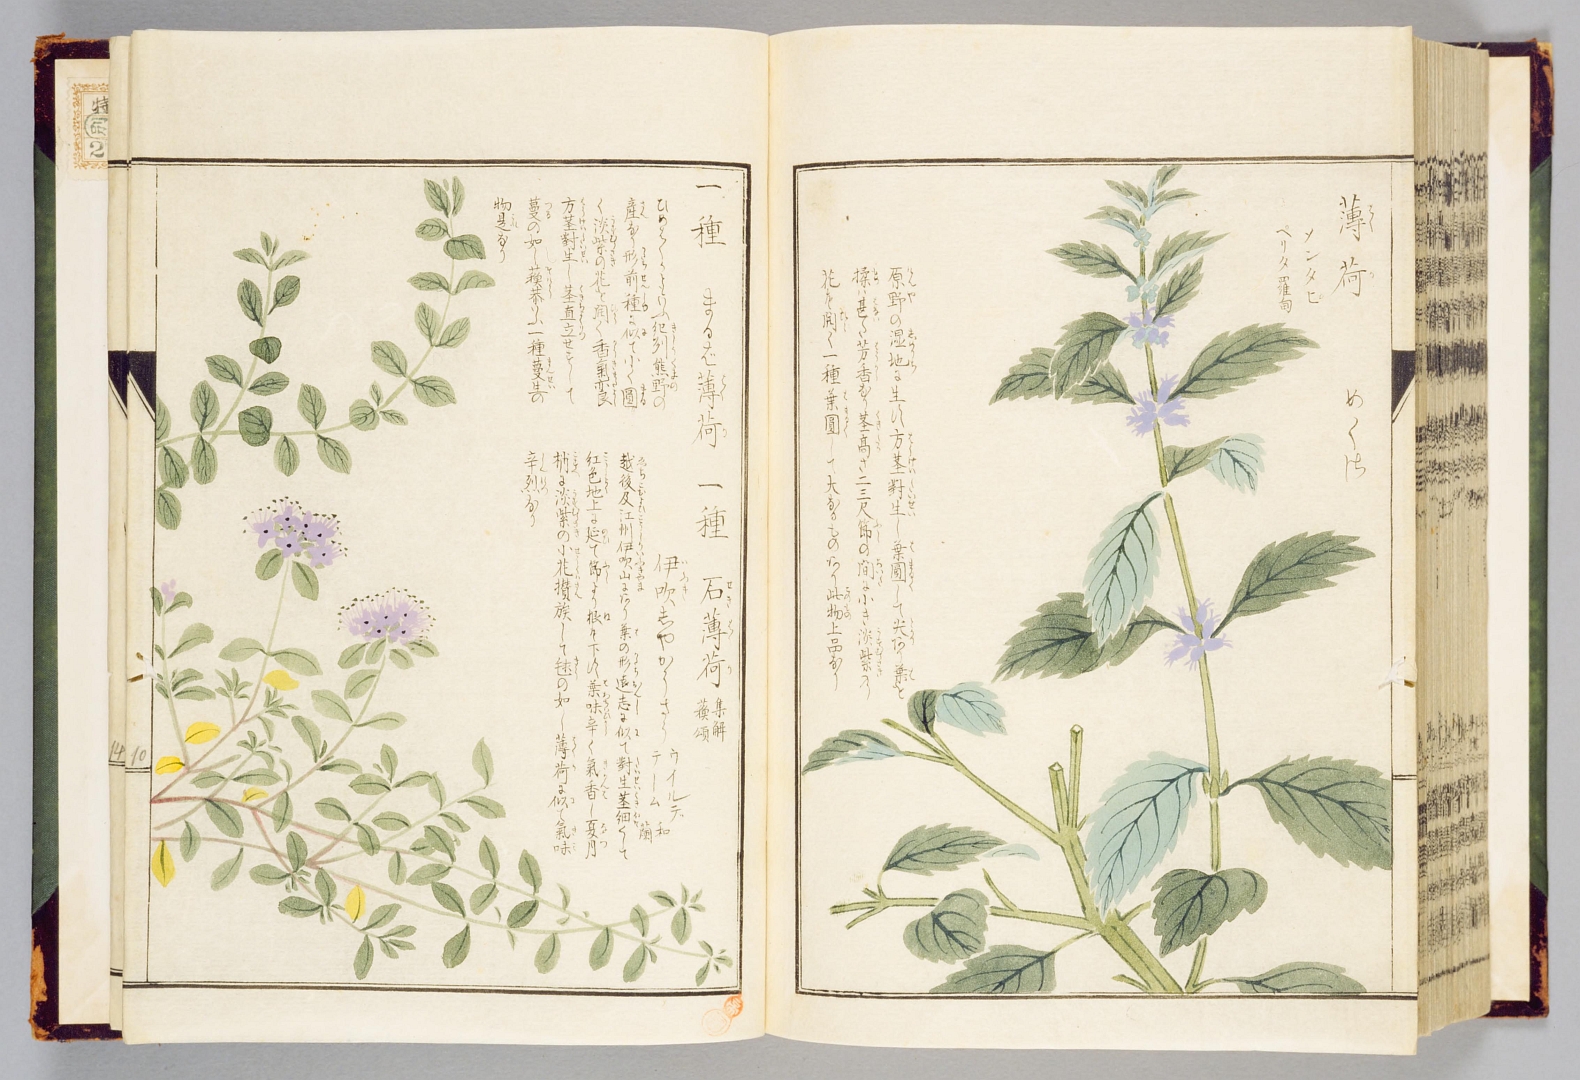 薄荷 めぐさ
メンタ ピ
ペリタ 羅甸
原野の湿地に生ズ方茎對生し葉圓して尖あり葉を
揉バ甚だ芳香あり茎高さ二三尺節の間に小き淡紫の
花を開く一種葉圓して大なるものあり此物上品なり
一種 まるば薄荷
ひめはくかといふ紀州熊野の
産なり形前種に似て小く圓
く淡紫の花を開く香氣亦良
方茎對生し茎直立せずして
蔓の如し蘓恭いふ一種蔓生の
物是なり
一種 石薄荷 集解 蘓頌
伊吹じやかうさう
ウイルデ
テーム 和蘭
越後及江州伊吹山にあり葉の形遠志に似て對生茎細くして
紅色地上に延て節より根を下ス葉味辛く氣香し夏月
梢に淡紫の小花攅族して毬の如し薄荷に似て氣味
辛烈なり
特
2
14 10